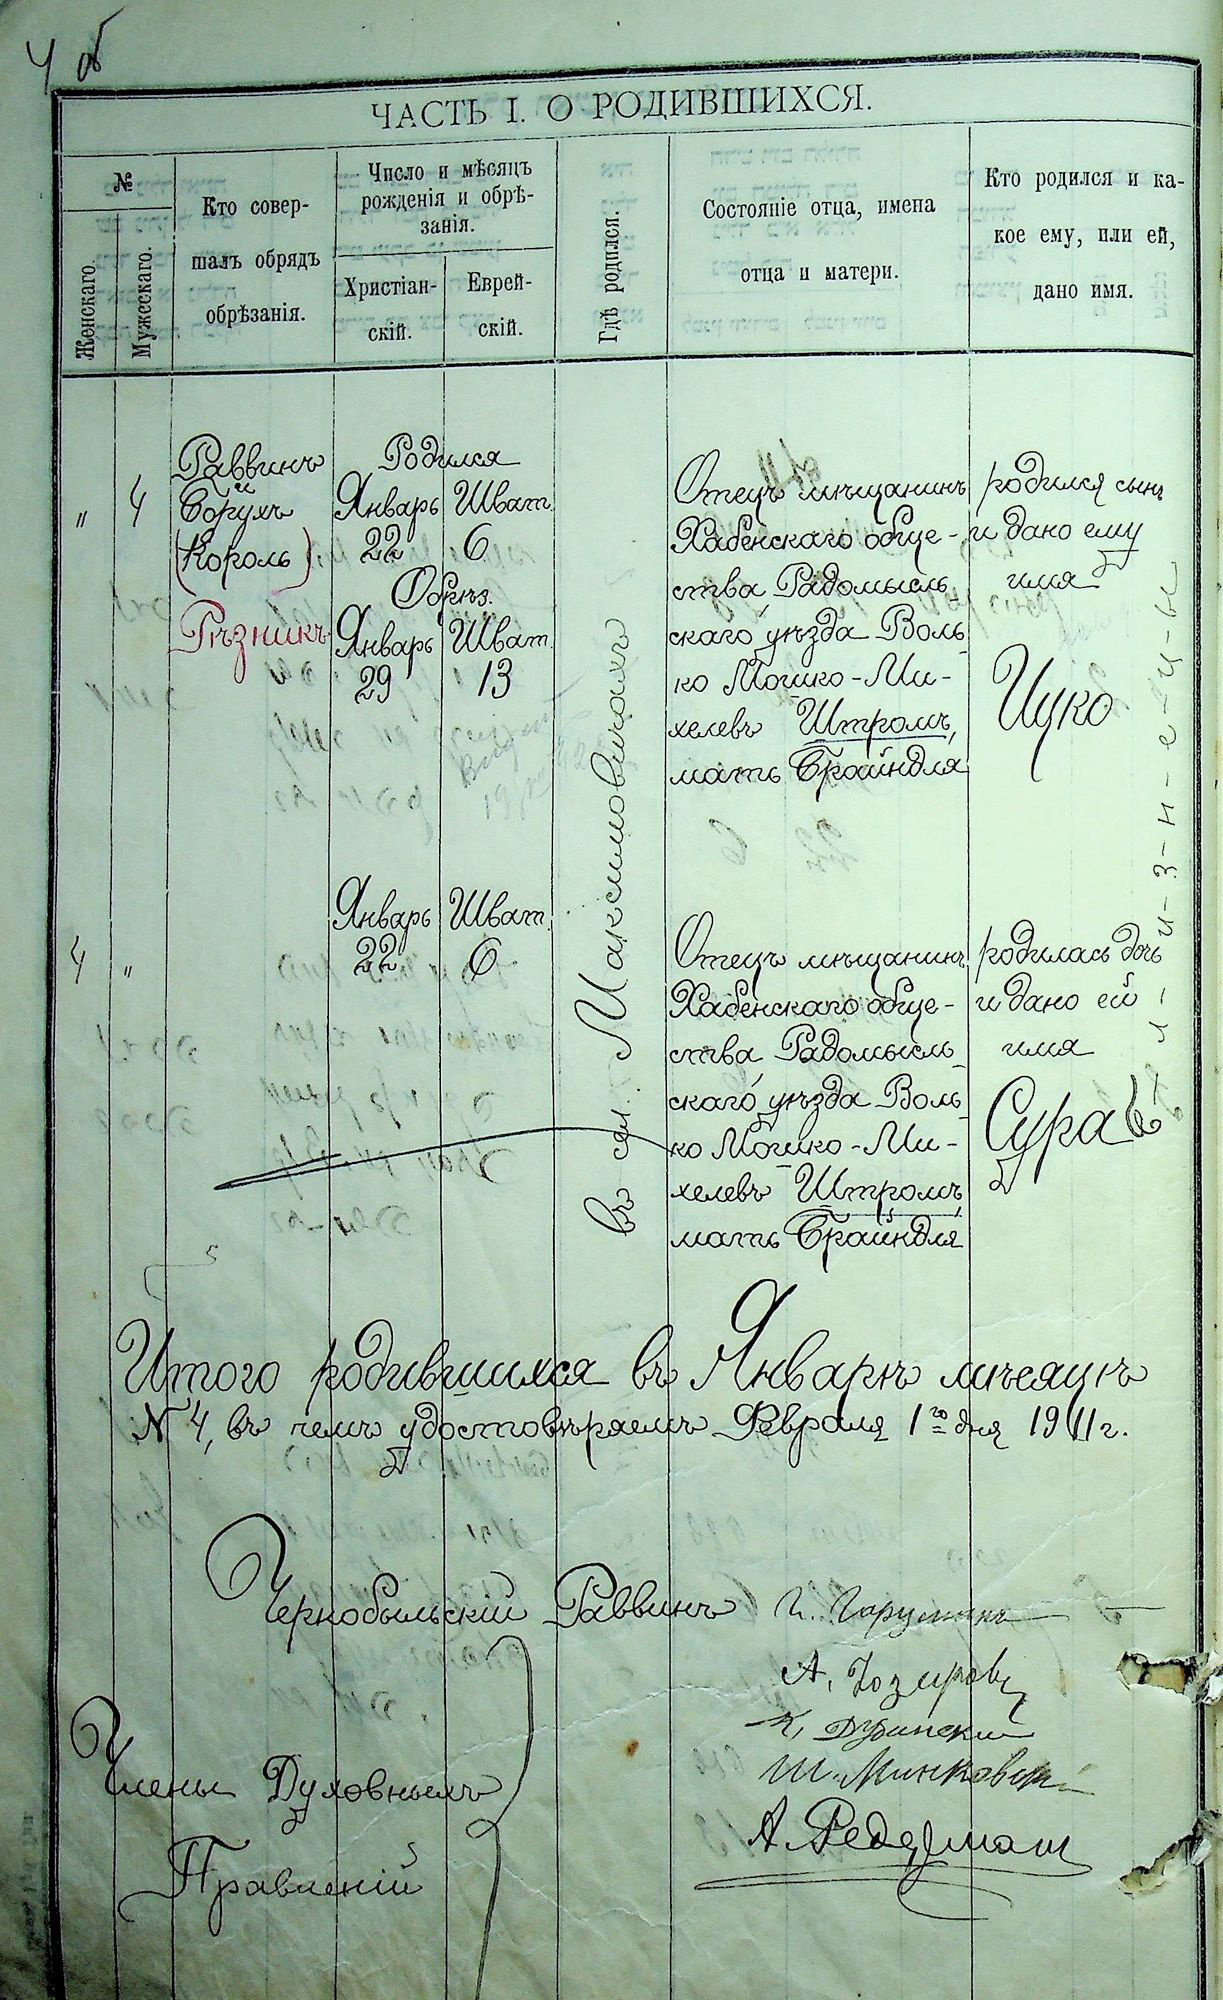 4 об
ЧАСТЬ I. О РОДИВШИХСЯ.
№
Женскаго.
Мужескаго.
Кто совер-
шалъ обрядъ
обрѣзанія.
Число и мѣсяцъ
рожденія и обрѣ-
занія.
Христіан-
скій.
Еврей-
скій.
Гдѣ родился.
Состояніе отца, имена
отца и матери.
Кто родился и ка-
кое ему, или ей,
дано имя.
"
4
Раввинъ
Борухъ
(Король)
Рѣзникъ
Родился
Январь Шват.
22 6
Обрѣз.
Январь Шват.
29 13
въ м. Максимовичахъ
Отецъ мѣщанинъ
Хабенскаго обще-
ства, Радомысль-
скаго уѣзда Воль-
ко Мошко-Ми-
хелевъ Штромъ,
мать Брайндля
родился сынъ
и дано ему
имя
Ицко
4
"
Январь Шват.
22 6
Отецъ мѣщанинъ
Хабенскаго обще-
ства, Радомысль-
скаго уѣзда Воль-
ко Мошко-Ми-
хелевъ Штромъ,
мать Брайндля
родилась дочь
и дано ей
имя
Сура
б-л-и-з-н-е-ц-ы
Итого родившихся въ Январѣ мѣсяцѣ
№ 4, въ чемъ удостовѣряемъ Февраля 1го дня 1911 г.
Чернобыльскій Раввинъ
Члены Духовныхъ
Правленій
К. Дубинскій
Ш. Минковскій
А. Федерман